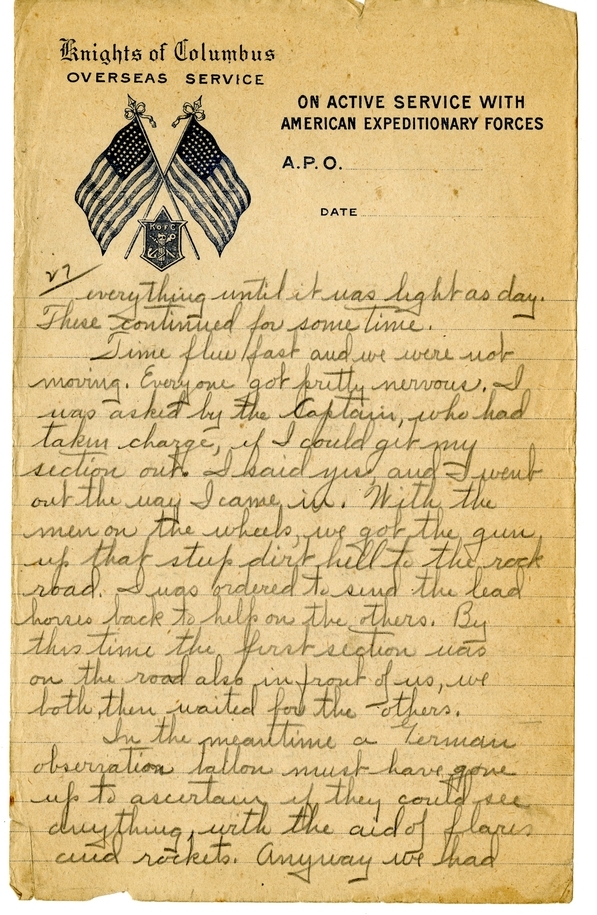 Knights of Columbus
OVERSEAS SERVICE
ON ACTIVE SERVICE WITH
AMERICAN EXPEDITIONARY FORCES
A.P.O.
DATE
K of C
27
everything until it was light as day.
These continued for some time.
Time flew fast and we were not
moving. Everyone got pretty nervous. I
was asked by the Captain, who had
taken charge, if I could get my
section out. I said yes, and I went
out the way I came in. With the
men on the wheels, we got the gun
up that steep dirt hill to the rock
road. I was ordered to send the lead
horses back to help on the others. By
this time the first section was
on the road also in front of us, we
both then waited for the others.
In the meantime a German
observation ballon must have gone
up to ascertain if they could see
anything, with the aid of flares
and rockets. Anyway we had